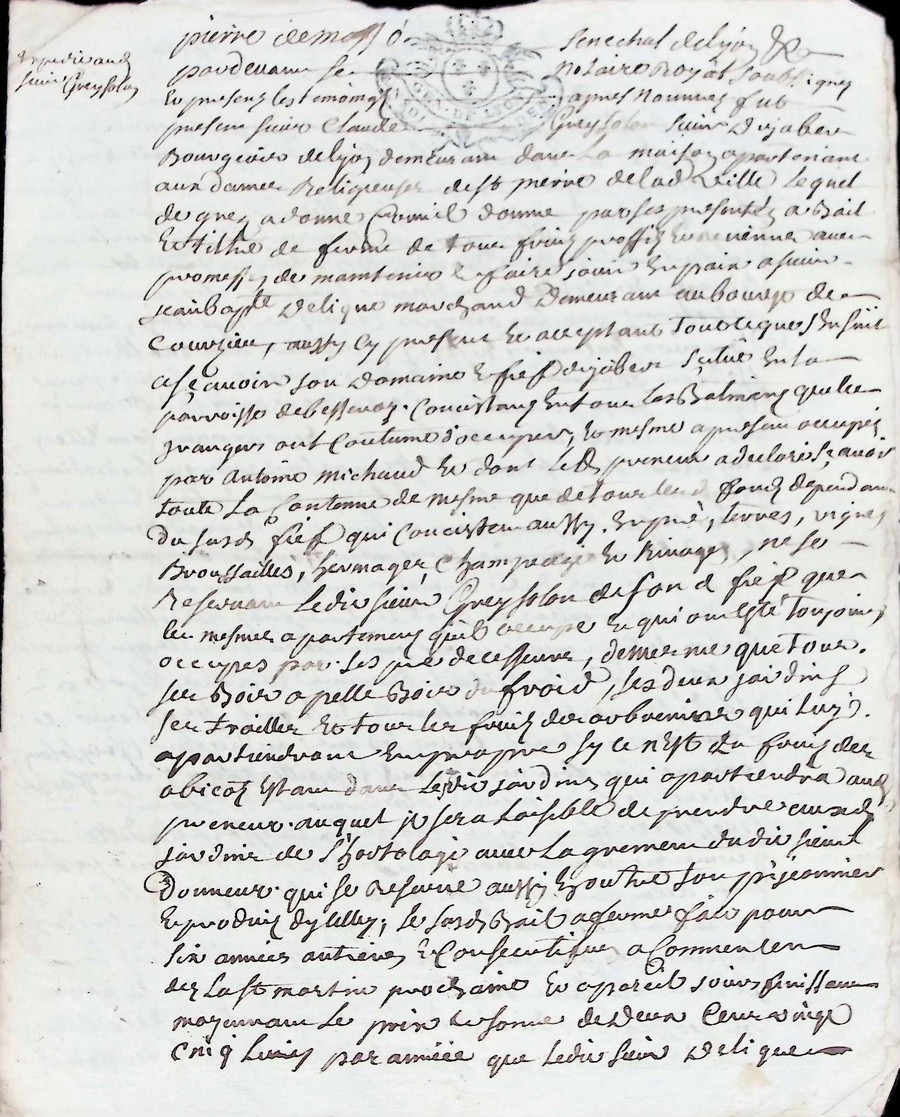 Expedié aud
sieur Greysolon
pierre demasso senechal de lyon &a
pardevant le notaire Royal soubsigné
et presens les temoings apres nommes fut
present sieur Claude Greysolon sieur Dujabert
Bourgeois de lyon demeurant dans La maison apartenant
aux dames Religieuses de st pierre de lad ville Lequel
de gre a donné Comme il donne par ses presentes a Bail
et tiltre de ferme de tous fruis proffis et revenus avec
promesse de maintenir & faire jouir en paix a sieur
jean bapte Delique marchand Demeurant au bourg de
Courzieu, aussy cy present et acceptant Toutes ques ensuit
a sçavoir son Domaine et fief dujabert scitué en la
parroisse de bessenay. Concistans en tous les Batimens que les
grangers ont Coutume d'occuper, et mesme a present occupés
par Antoine michaud et dont Led preneur a declaré sçavoir
toute La Contenue de mesme que de tous lesd fonds dependans
du susd fief qui Concistent aussy en prés, terres, vignes
Broussailles, hermages, et Rivages, ne se
Reservant Ledit sieur Greysolon de son d fief que
les mesmes apartemens quil occupe et qui ont esté toujours
occupes par ses predecesseurs, demesme que tous
ses Bois apellé Bois du froid, ses deux jardins
ses trailles et tous les fruis des arbres qui luy
apartiendront en propre sy ce n'est Les fruis des
abicos estant dans lesdis jardins qui apartiendra aud
preneur auquel il sera Loisible de prendre auxd
jardins de L'hortolage avec Lagrement dudit sieur
Donneur qui se Reserve aussy en outre son pigeonnier
et produis dycelluy; Le susd Bail a ferme fait pour
six années entieres et Consecutives a Commencer
des La st martin prochaine et a pareil jours finissant
moyennant Le prix et somme de deux Cens vingt
Cinq Livres par année que Ledit sieur Delique